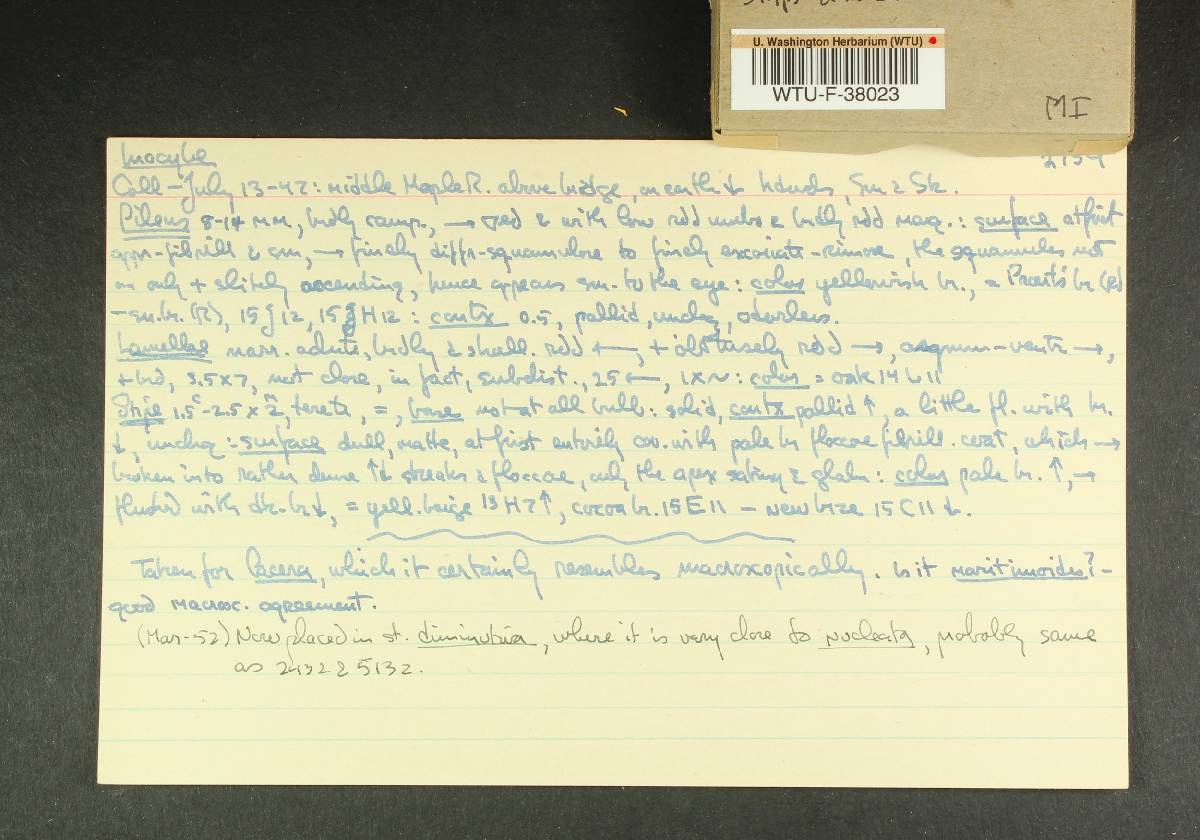 U. Washington Herbarium (WTU)
WTU-F-38023
MI
Inocybe
Coll - July 13-47: middle Maple R. above bridge, on earth & Sm & Sk.
Pileus 8-14 mm, brdly camp., → & with low rdd umbo & brdly rdd marg.: surface at first
appr-fibrill & sm, → finely diffr-squamulose to finely excoriate-rimose, the squamules not
or only + slitely ascending, hence appears sm. to the eye: color yellowish br., = Prout's br (R)
-sn.br. (R), 15 J 12, 15 H 12: contx 0.5, pallid, unchg, odorless.
Lamellae narr. adnate, brdly & shall. rdd ←, + obtusely rdd →, →,
+ brd, 3.5x7, not close, in fact, subdist., 25 ←, 1x~: color = oak 14 L 11
Stipe 1.5c-2.5 x 2m, terete, =, base not at all bulb: solid, contx pallid ↑, a little fl. with br.
↓, unchg: surface dull, matte, at first entirely cov. with pale br floccose fibrill. coat, which →
broken into rather dense ↑↓ streaks & floccae, only the apex satiny & glabr: color pale br. ↑, →
flushed with dk-br ↓, = yell. beige 13 H 7 ↑, cocoa br. 15 E 11 - new bze 15 C 11 ↓.
Taken for lacera, which it certainly resembles macroscopically. Is it maritimoides? -
good macrosc. agreement.
(Mar-52) Now placed in st. diminutiva, where it is very close to nucleata, probably same
as 2432 & 5132.